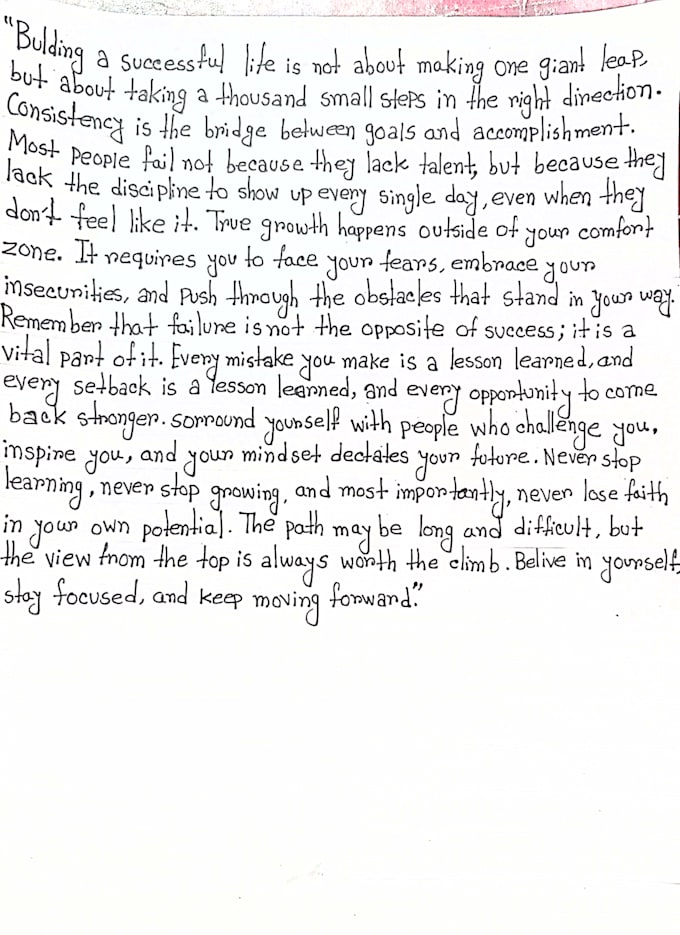 "Bulding a successful life is not about making one giant leap,
but about taking a thousand small steps in the right direction.
Consistency is the bridge between goals and accomplishment.
Most people fail not because they lack talent, but because they
lack the discipline to show up every single day, even when they
don't feel like it. True growth happens outside of your comfort
zone. It requires you to face your fears, embrace your
insecurities, and push through the obstacles that stand in your way.
Remember that failure is not the opposite of success; it is a
vital part of it. Every mistake you make is a lesson learned, and
every setback is a lesson learned, and every opportunity to come
back stronger. sorround yourself with people who challenge you,
inspire you, and your mindset dectates your future. Never stop
learning, never stop growing, and most importantly, never lose faith
in your own potential. The path may be long and difficult, but
the view from the top is always worth the climb. Belive in yourself,
stay focused, and keep moving forward."